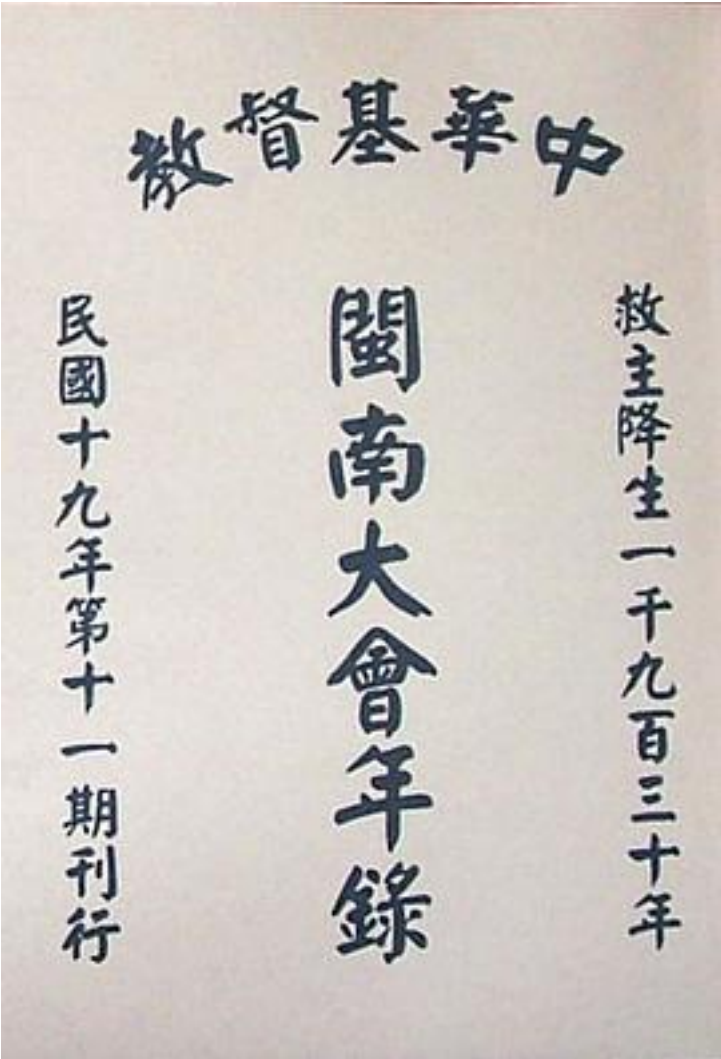 中華基督教
救主降生一千九百三十年
閩南大會年錄
民國十九年第十一期刊行